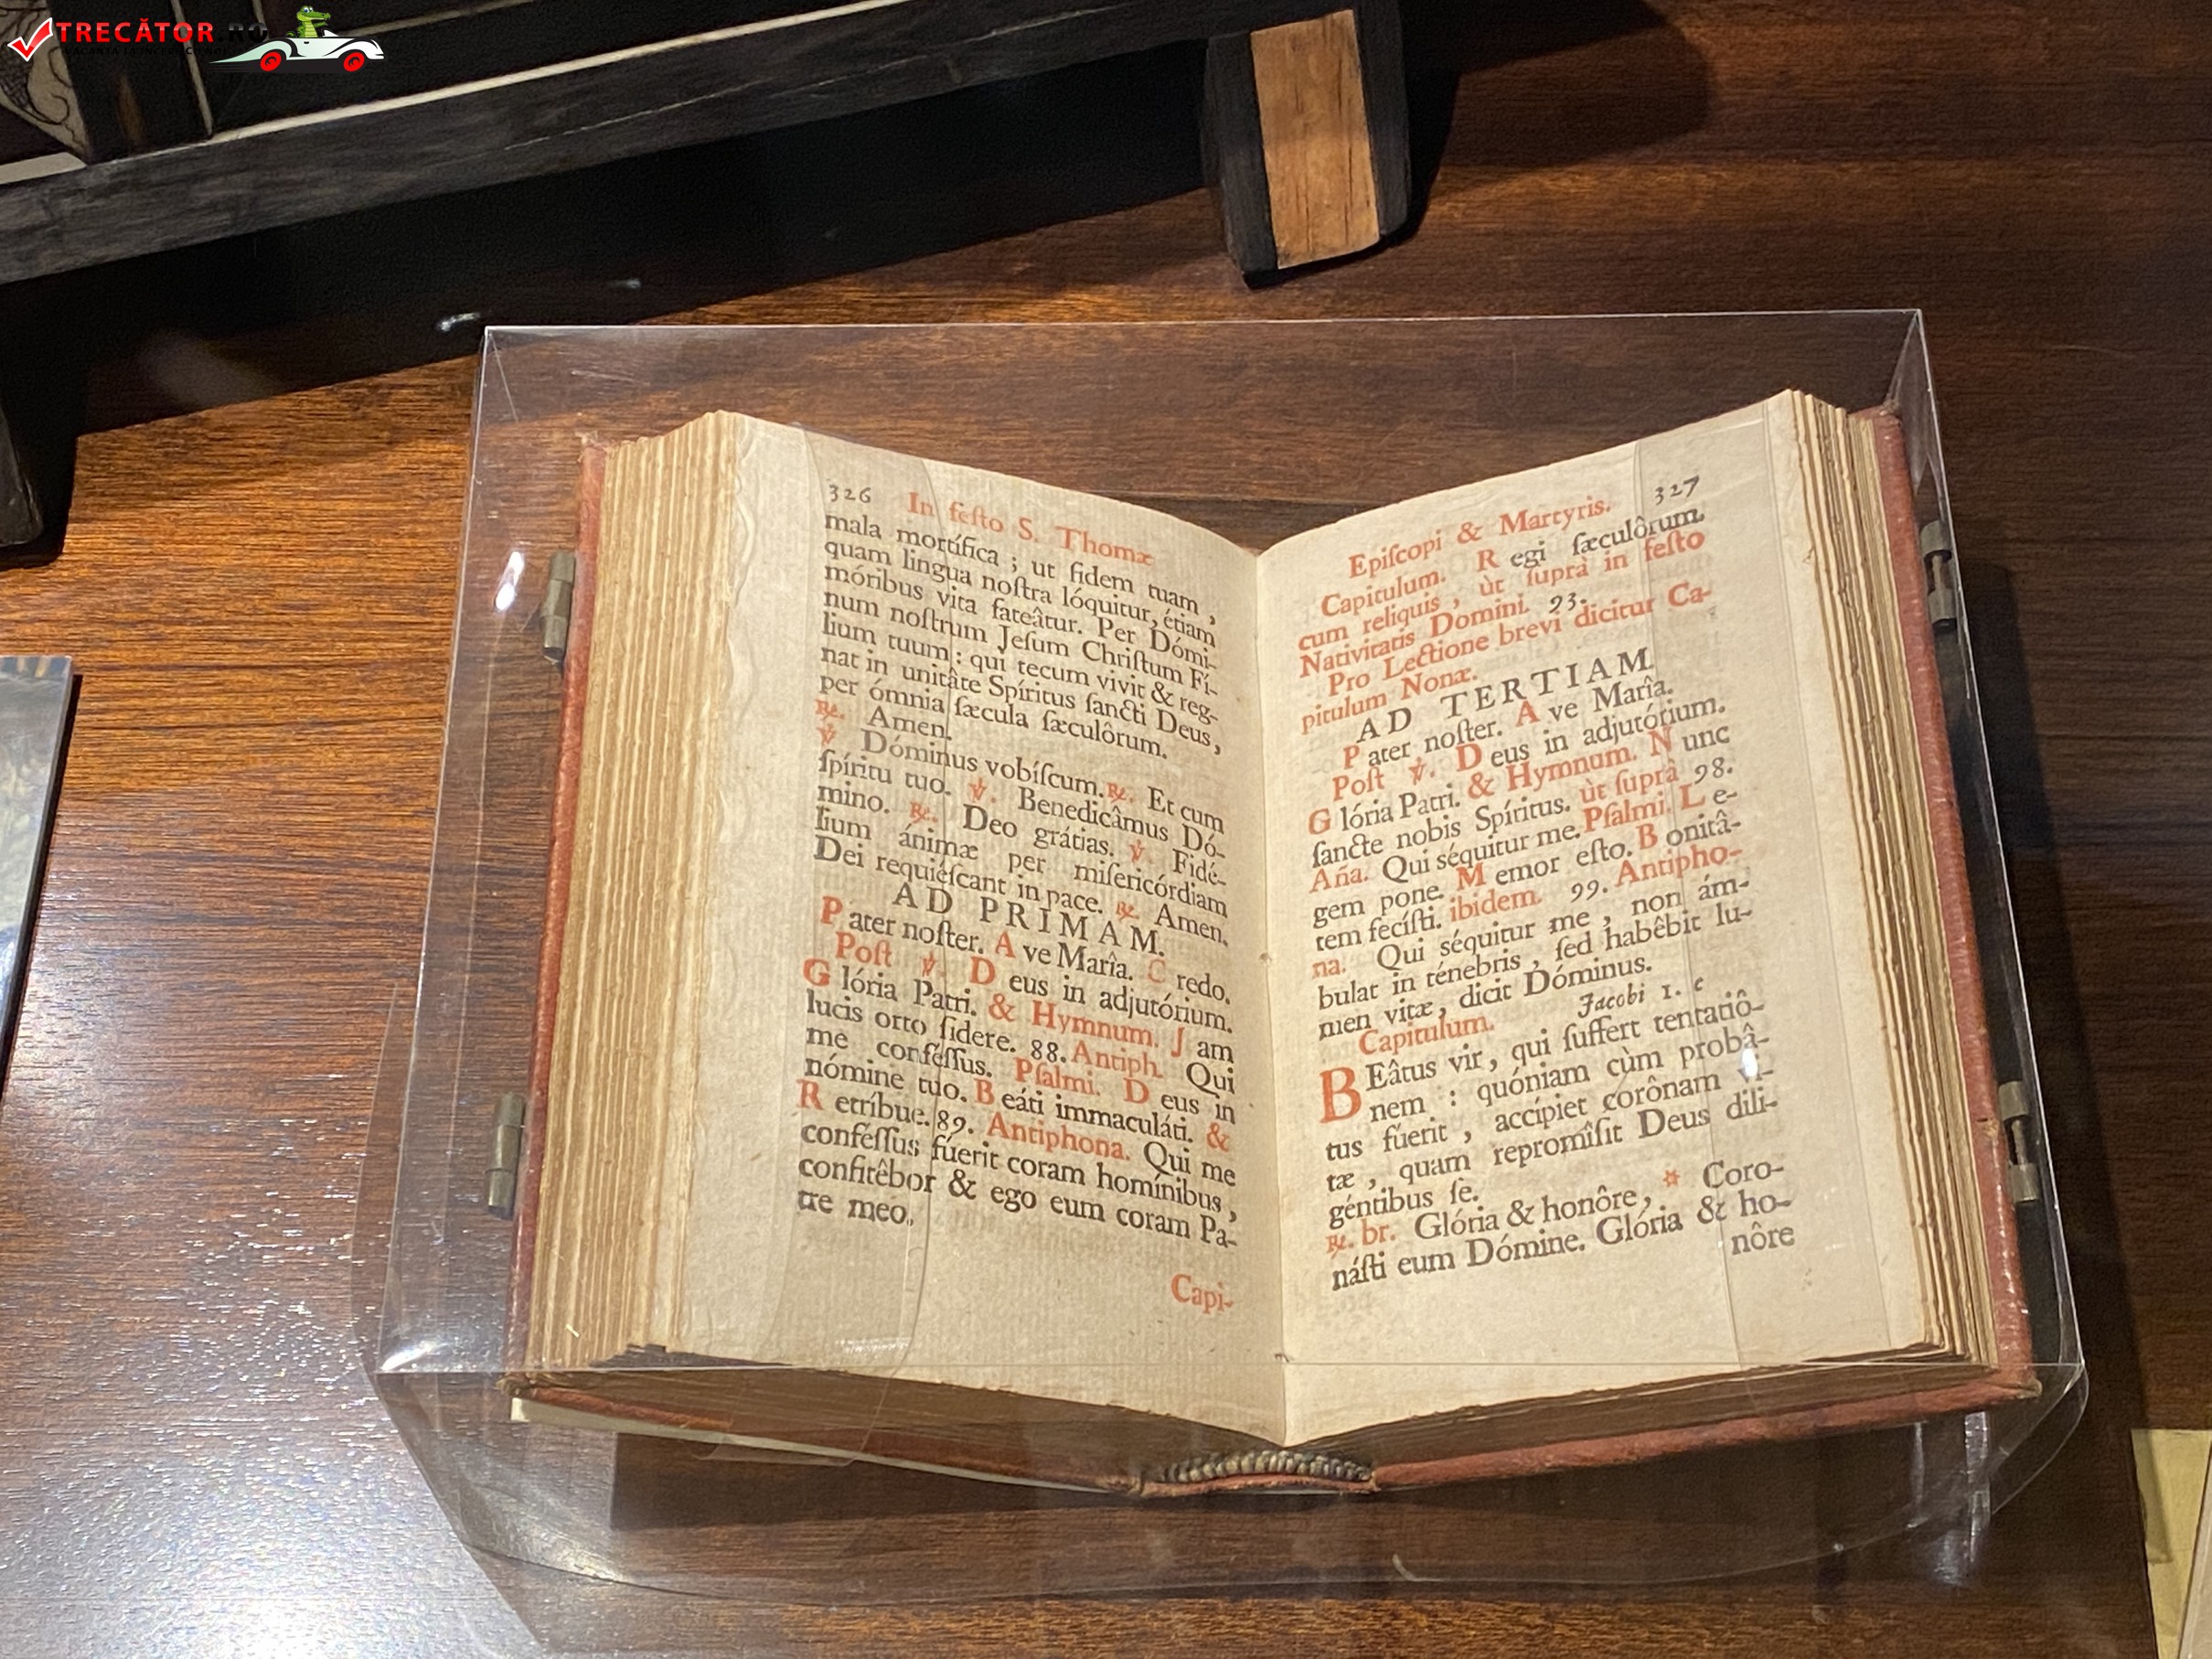 TRECĂTOR.RO
326
In feſto S. Thomæ
mala mortífica ; ut fidem tuam ,
quam lingua noſtra lóquitur, étiam
móribus vita fateâtur. Per Dómi-
num noſtrum Jeſum Chriſtum Fí-
lium tuum : qui tecum vivit & reg-
nat in unitâte Spíritus ſancti Deus,
per ómnia ſæcula ſæculôrum.
℟. Amen.
℣ Dóminus vobíſcum. ℟. Et cum
ſpíritu tuo. ℣. Benedicâmus Dó-
mino. ℟. Deo grátias. ℣. Fidé-
lium ánimæ per miſericórdiam
Dei requiéſcant in pace. ℟. Amen.
AD PRIMAM.
Pater noſter. Ave Marîa. Credo.
Poſt ℣. Deus in adjutórium.
Glória Patri. & Hymnum. Jam
lucis orto ſidere. 88. Antiph. Qui
me conféſſus. Pſalmi. Deus in
nómine tuo. Beáti immaculáti. &
Retríbue. 89. Antiphona. Qui me
conféſſus fúerit coram homínibus,
confitêbor & ego eum coram Pa-
tre meo.
Capi-
327
Epiſcopi & Martyris.
Capitulum. Regi ſæculôrum.
cum reliquis, ùt ſuprà in feſto
Nativitatis Domini. 93.
Pro Lectione brevi dicitur Ca-
pitulum Nonæ.
AD TERTIAM.
Pater noſter. Ave Marîa.
Poſt ℣. Deus in adjutórium.
Glória Patri. & Hymnum. Nunc
ſancte nobis Spíritus. ùt ſuprà 98.
Aña. Qui séquitur me. Pſalmi. Le-
gem pone. Memor eſto. Bonitâ-
tem feciſti. ibidem. 99. Antipho-
na. Qui séquitur me , non ám-
bulat in ténebris , ſed habêbit lu-
men vitæ, dicit Dóminus.
Capitulum. Jacobi 1. c
BEâtus vir, qui ſuffert tentatiô-
nem : quóniam cùm probâ-
tus fúerit , accípiet corônam vi-
tæ , quam repromîſit Deus dili-
géntibus ſe.
℟. br. Glória & honôre, * Coro-
náſti eum Dómine. Glória & ho-
nôre